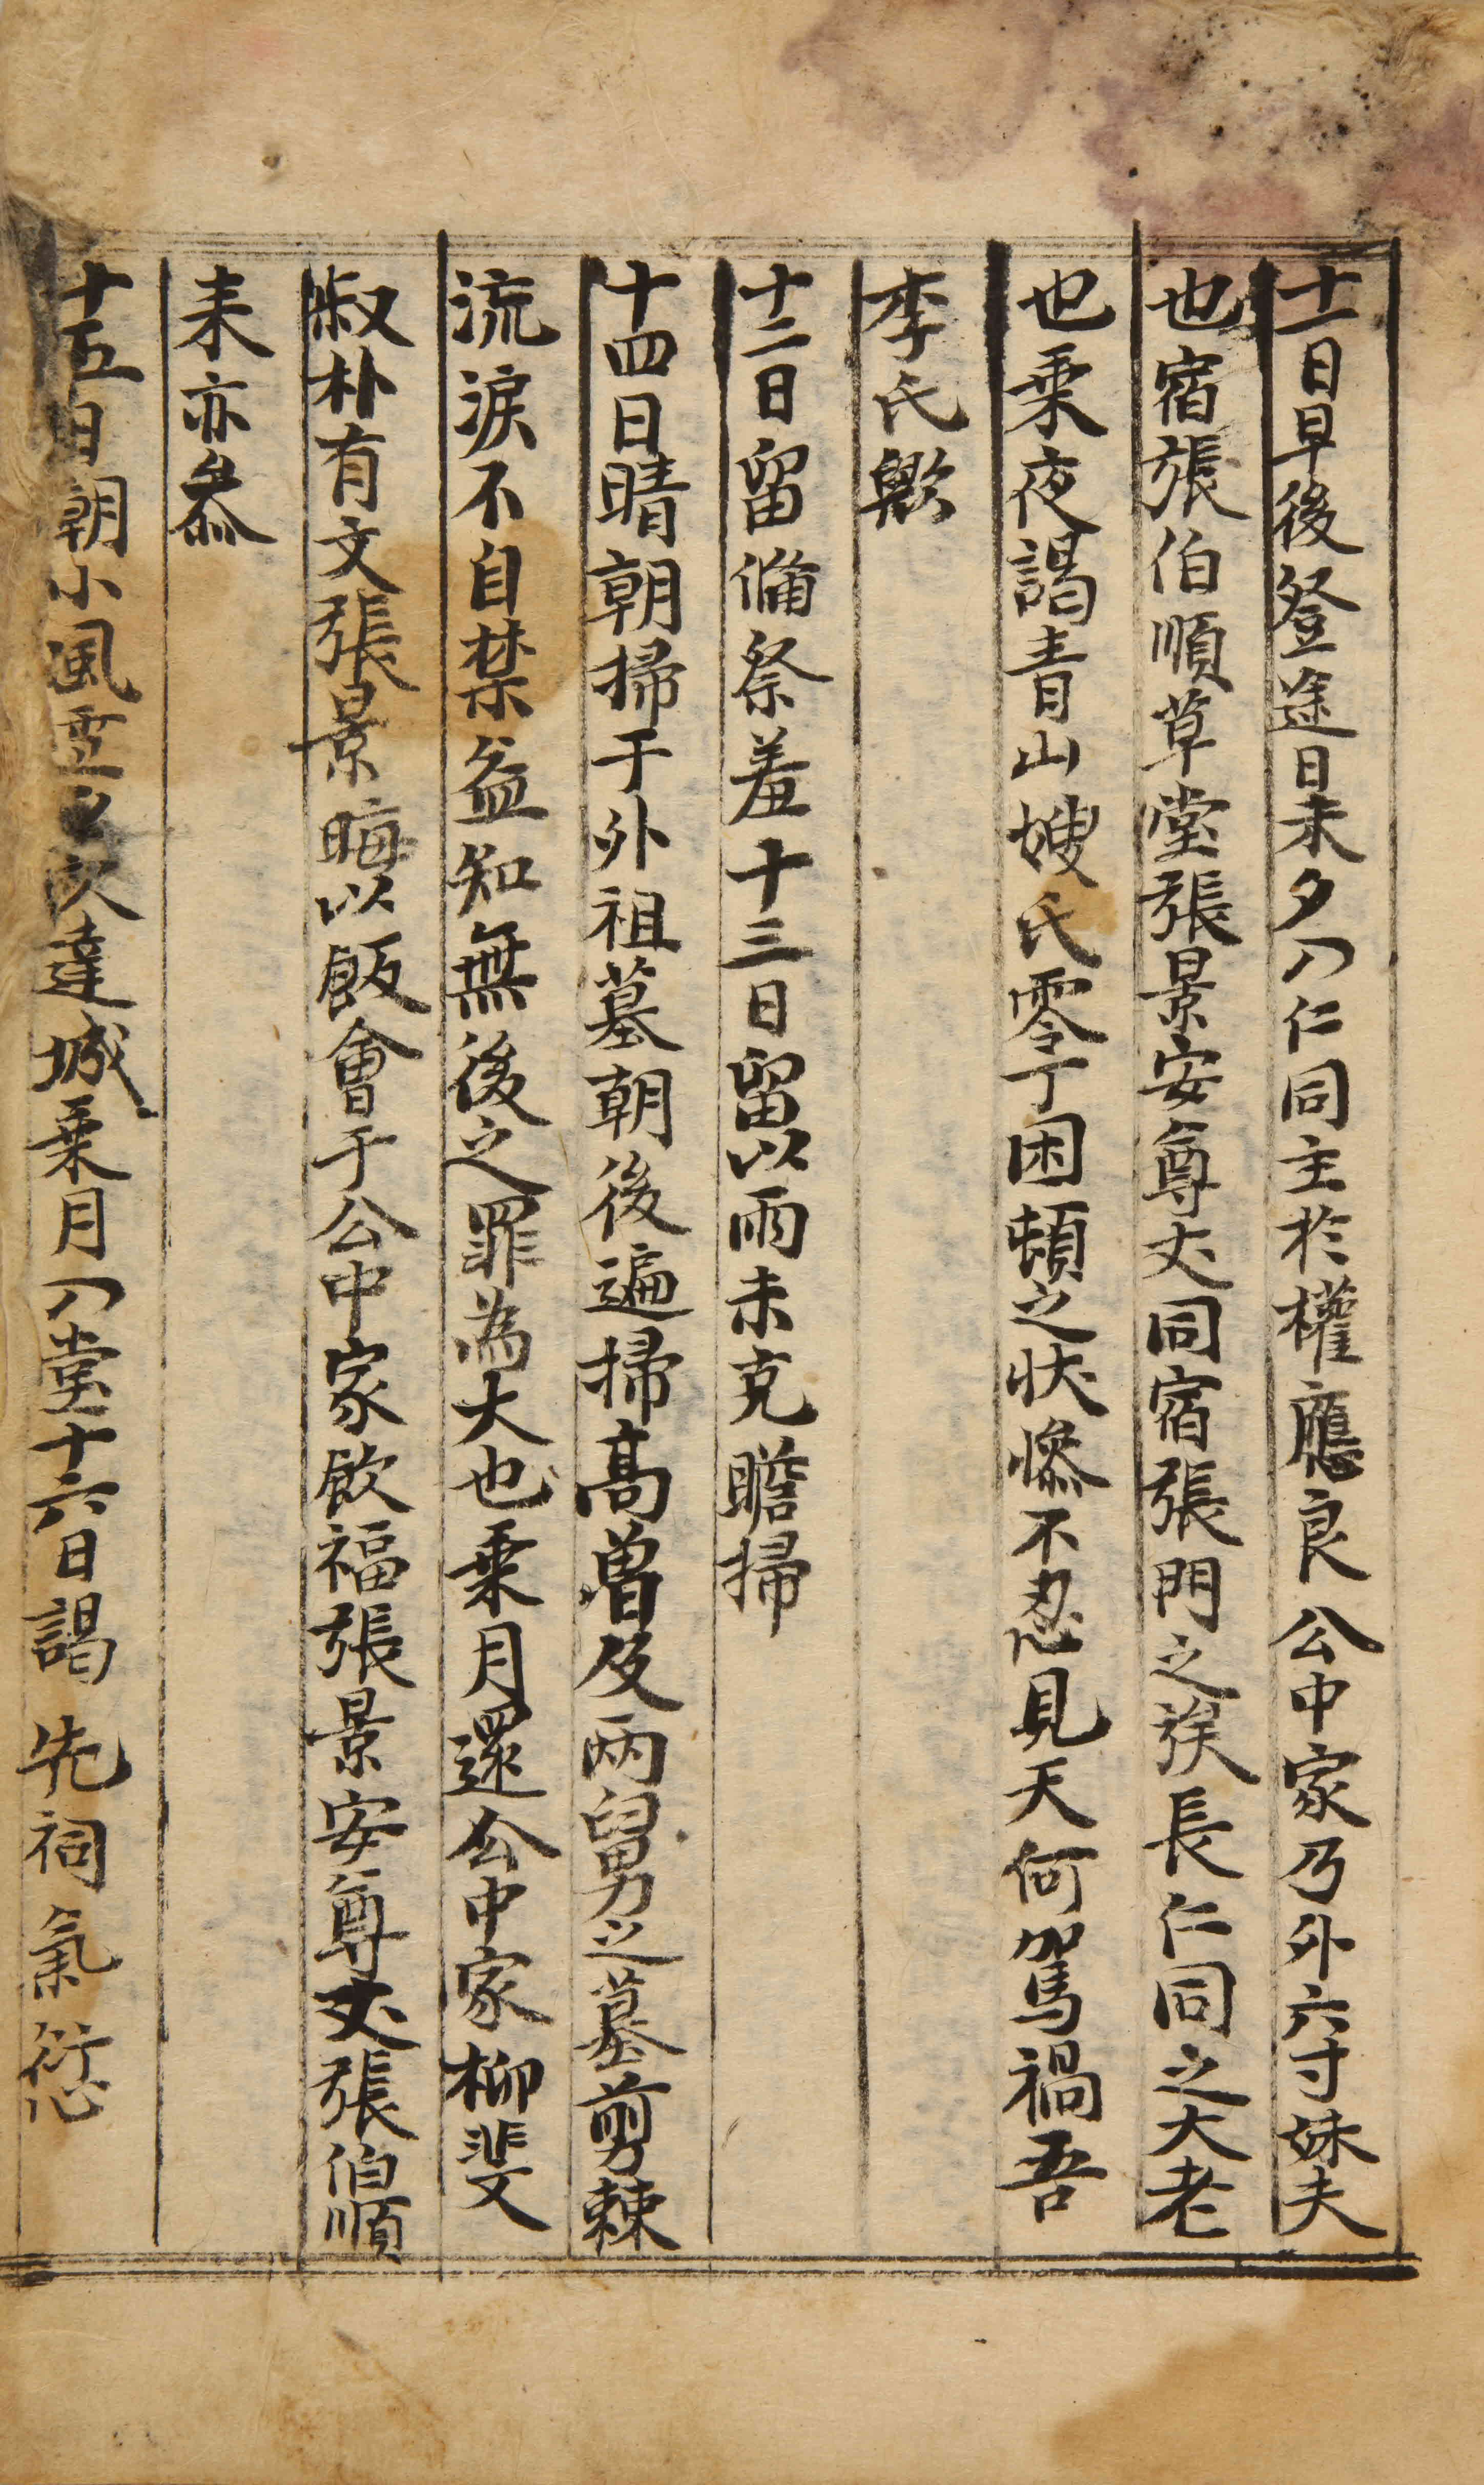 十一日早後登途日未夕入仁同主於權應良公中家乃外六寸妹夫
也宿張伯順草堂張景安尊丈同宿張門之族長仁同之大老
也乘夜謁青山嫂氏零丁困頓之狀慘不忍見天何篤禍吾
李氏歟
十二日留備祭羞十三日留以雨未克瞻掃
十四日晴朝掃于外祖墓朝後遍掃高曾及兩舅之墓剪棘
流淚不自禁益知無後之罪為大也乘月還公中家柳斐文
叔朴有文張景晦以飯會于公中家飲福張景安尊丈張伯順
来亦參
十五日朝小風雪 次達城乘月入堂十六日謁 先祠氣愆